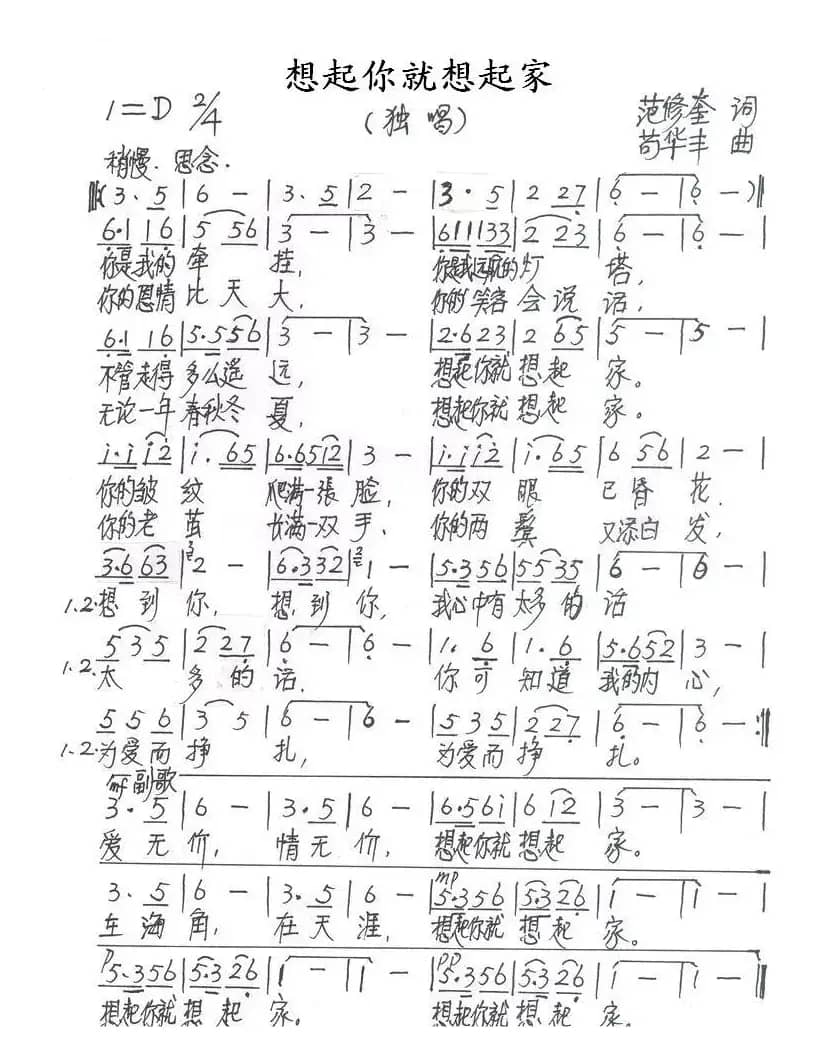 想起你就想起家
1=D 2/4
(独唱)
范修奎 词
苟华丰 曲
稍慢. 思念.
‖(3. 5 | 6 - | 3. 5 | 2 - | 3. 5 | 2 27 | 6 - | 6 - )‖
6.1 16 | 5 56 | 3 - | 3 - | 611133 | 2 23 | 6 - | 6 - |
你是我的 牵 挂, 你是我远航的灯 塔,
你的恩情比天大, 你的笑容会说话,
6.1 16 | 5.556 | 3 - | 3 - | 2.623 | 2 65 | 5 - | 5 - |
不管走得多么遥远, 想起你就想起家。
无论一年春秋冬夏, 想起你就想起家。
i.i i2 | i. 65 | 6.65i2 | 3 - | i.i i2 | i. 65 | 6 56 | 2 - |
你的皱纹 爬满一張脸, 你的双眼 已昏花.
你的老茧 长满一双手、 你的两鬓 又添白发,
3.6 63 | 2 - | 6.332 | 1 - | 5.356 | 5535 | 6 - | 6 - |
1.2.想到你, 想到你, 我心中有太多的话
5 3 5 | 2 27 | 6 - | 6 - | 1. 6 | 1. 6 | 5.652 | 3 - |
1.2.太多的话. 你可知道我的内心,
5 5 6 | 3 5 | 6 - | 6 - | 5 3 5 | 2 27 | 6 - | 6 - :‖
1.2.为爱而挣扎, 为爱而挣扎。
mf 副歌
3. 5 | 6 - | 3. 5 | 6 - | 6.56i | 6 i2 | 3 - | 3 - |
爱无价, 情无价, 想起你就想起家。
mp
3. 5 | 6 - | 3. 5 | 6 - | 5.356 | 5.326 | 1 - | 1 - |
在海角, 在天涯, 想起你就想起家。
p 5.356 | 5.3 26 | 1 - | 1 - | pp 5.356 | 5.3 26 | 1 - | 1 - ‖
想起你就想起家。 想起你就想起家。